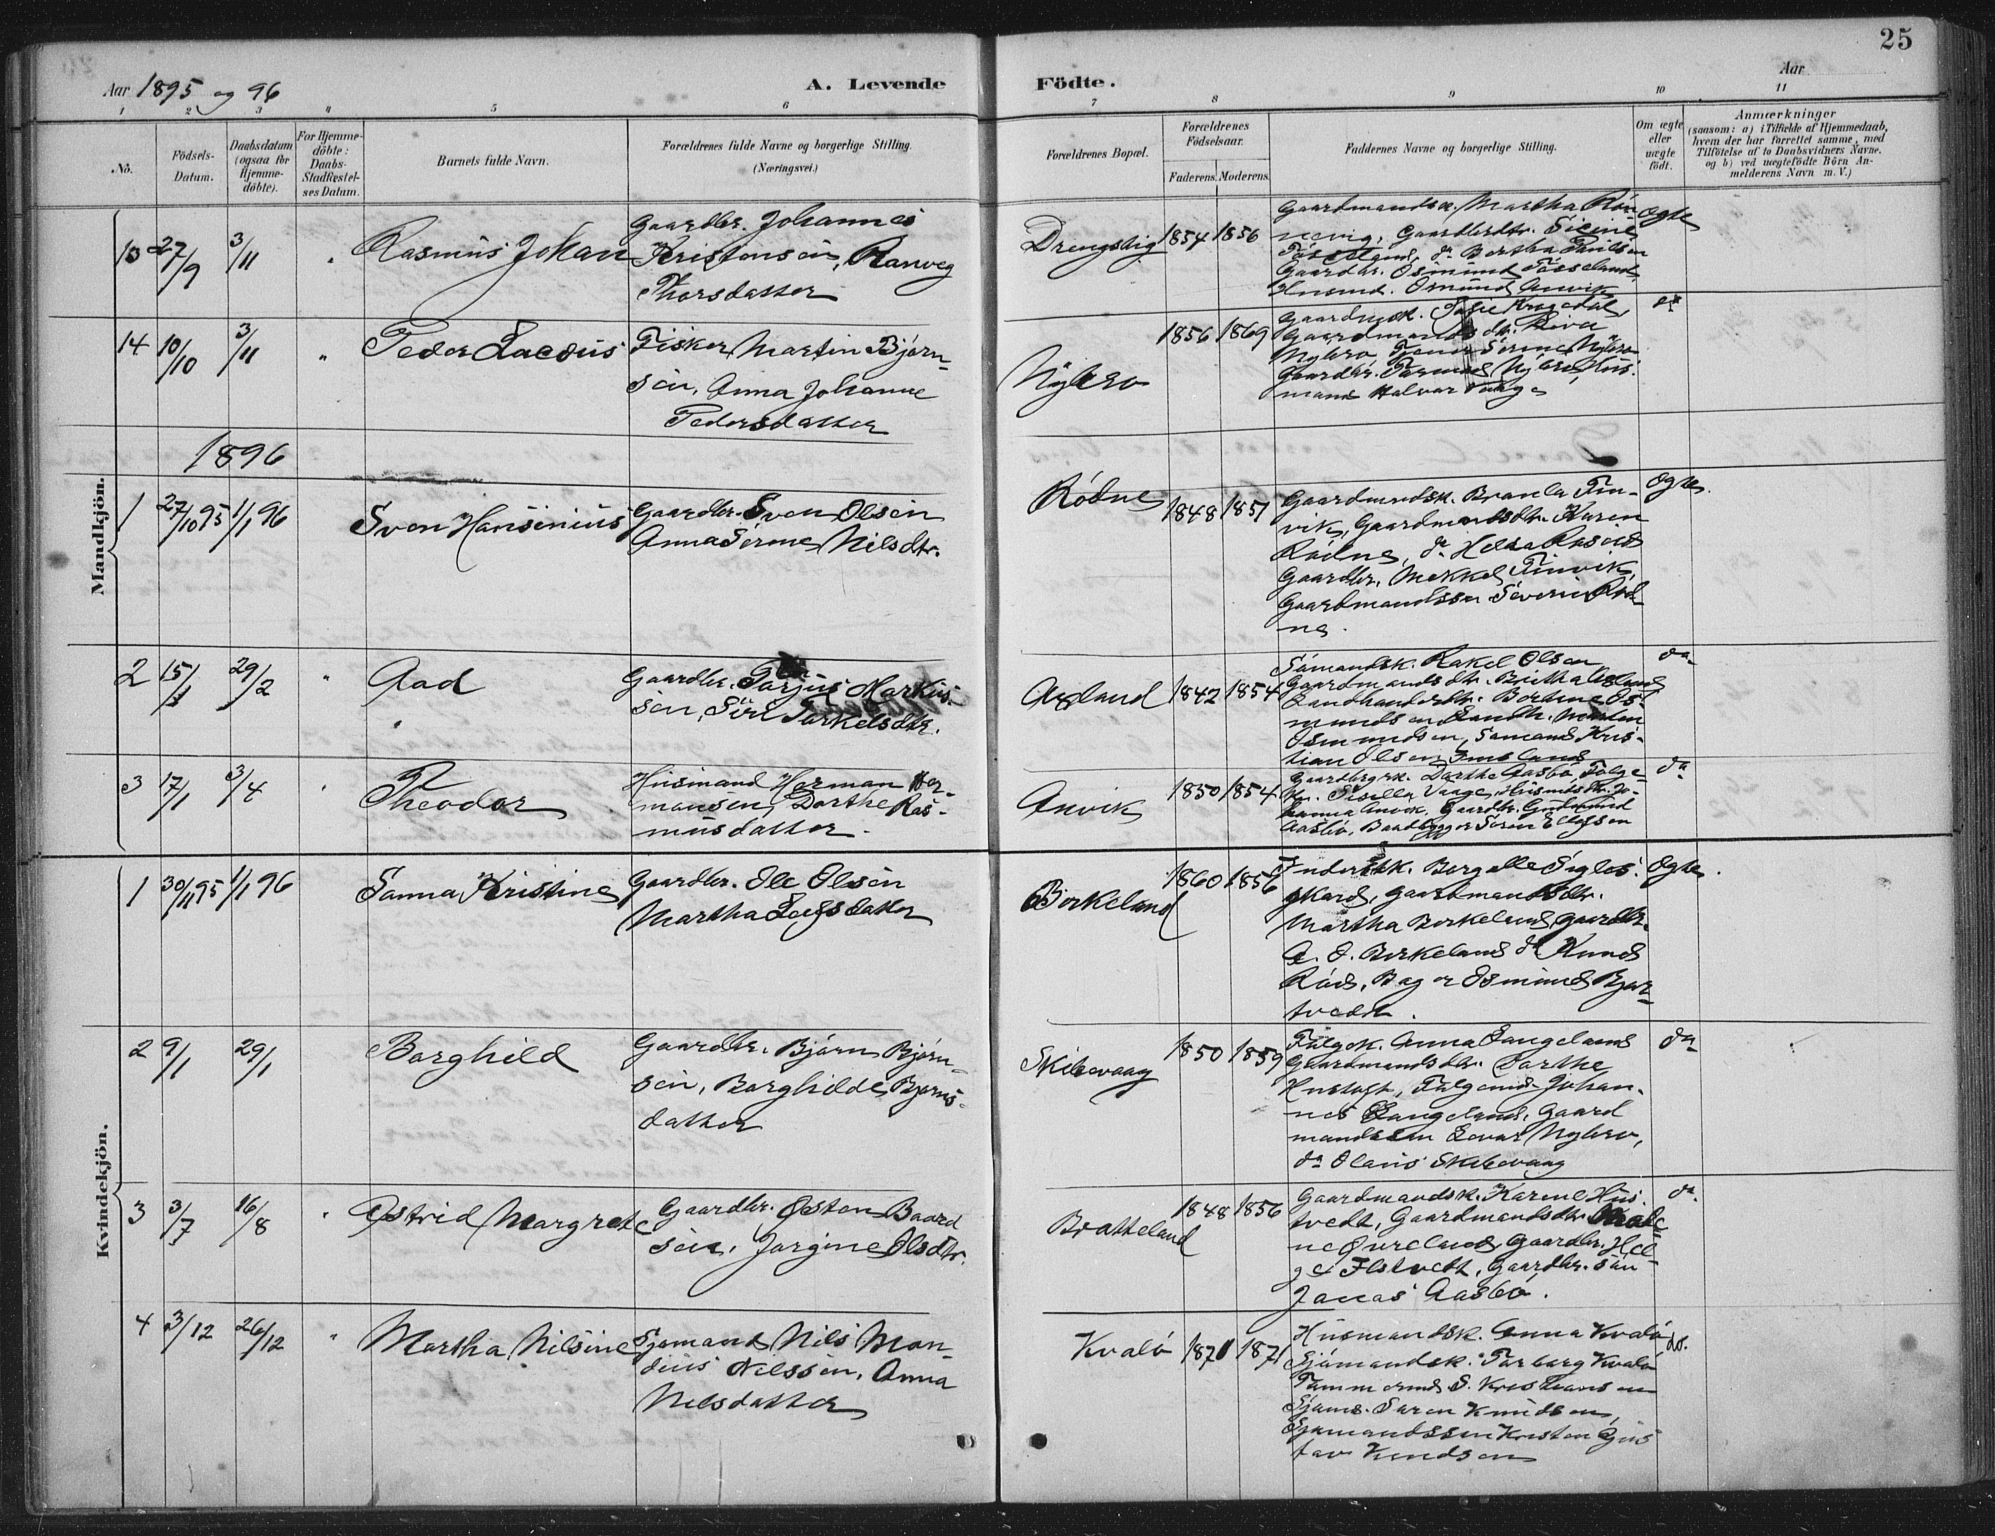 25
Aar 1895 og 96
A. Levende
Födte.
Aar
1 2 3 " 5 6 7 8 9 10 11
No.
Födsels-
Datum.
Daabsdatum
(ogsaa for
Hjemme-
döbte).
For Hjemme-
döbte:
Daabs-
Stadfæstel-
ses Datum.
Barnets fulde Navn.
Forældrenes fulde Navne og borgerlige Stilling.
(Næringsvei.)
Forældrenes Bopæl.
Forældrenes
Födselsaar.
Faderens. Moderens.
Faddernes Navne og borgerlige Stilling.
Om ægte
eller
uægte
födt.
Anmærkninger
(saasom: a) i Tilfælde af Hjemmedaab,
hvem der har forrettet samme, med
Tilföielse af to Daabsvidners Navne.
og b) ved uægtefödte Börn An-
melderens Navn m. V.)
Mandkjön.
13 27/9 3/11 " Rasmus Johan
Gaardbr. Johannes
Kristensen, Ranveg
Thorsdatter
Drengstig 1854 1856
Gaardmandsk. Martha Røn
nevig, Gaardbrdtr.
Gaardbr. Osmund Fosseland,
Husmd. Osmund Anvik
Ægte
14 10/10 3/11 "
Fisker Martin Bjørn-
sen, Anna Johanne
Pedersdatter
Nybro 1856 1869
Nybro, Serine Nybro
Gaardbr. Nybro, Hus.
mand Halvar Vaage
da
1896
1 27/10 95 1/1 96 Sven Hansinius
Gaardbr. Sven Olsen
Anna Serine Nilsdtr.
Rødne 1848 1851
Gaardmandsk. Finn-
vik, Gaardmandsdtr. Karen
Rødne, da
Gaardbr. Mikkel Finvik,
Gaardmandssøn Severin Rød
ne.
Ægte.
2 15/1 29/2 " Aad
Gaardbr. Torjus Markus
sen, Siri Torkelsdtr.
Axland 1842 1854
Sømandsk. Rakel Olsen
Gaardmandsdtr. Axland
Landhandlerdtr. Bertine Os-
mundsen Landh. Morten
Osmundsen, Sømand Kris-
tian Olsen Imsland
da
3 17/1 3/4 " Theodor
Husmand Herman Her-
mansen, Dorthe Ras-
musdatter.
Anvik 1850 1854
Gaardbrgrk. Dorthe Aasbø, Følge-
k. Vaage, Husmdsdtr. Jo-
hanna Anvik, Gaardbr. Gudmund
Aasbø, Baadbygger Søren
da
Kvindekjön.
1 30/11 95 1/1 96 Sanna Kristine
Gaardbr. Ole Olsen
Martha Leifsdatter
Birkeland 1860 1856
Inderstk. Bergitte
Gaardmandsdtr.
Martha Birkeland, Gaardbr.
Birkeland da Knud
Rød, Osmund Bjor-
tvedt.
Ægte.
2 9/1 29/1 Borghild
Gaardbr. Bjørn Bjørn-
sen, Borghilde Bjørns-
datter
Skibevaag 1850 1859
Følgek. Anna Langeland
Gaardmandsdtr. Dorthe
Hustoft, Følgemd. Johan-
nes Langeland, Gaard
mandssøn Levar Nybro,
da Olaus Skibevaag
da
3 3/7 16/8 " Astrid Margrete
Gaardbr. Østen Baard
sen, Jorgine Olsdtr.
Bratteland 1848 1856
Gaardmandsk. Karine Hus-
tvedt, Gaardmandsdtr. Male-
ne Øvreland, Gaardbr. Hel-
ge Flstvedt, Gaardbr. søn
Jonas Aasbø.
da.
4 3/12 26/12 " Martha Nilsine
Sjømand Nils Mon-
dius Nilssen, Anna
Nilsdatter
Kvalø 1871 1871
Husmandsk. Anna Kvalø
Sjømandsk. Torborg Kvalø
Tømmermd S. Kristiansen
Sjømd. Søren Knudsen,
Sjømandssøn Kristen Gus
tav Knudsen
do.